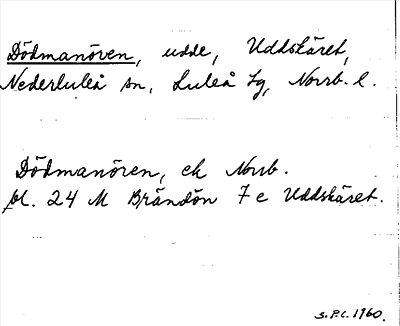 Dödmanören, udde, Uddskäret,
Nederluleå sn, Luleå tg, Norrb. l.
Dödmanören, ek Norrb.
bl. 24 M Brändön 7 e Uddskäret.
S.P.C. 1960.